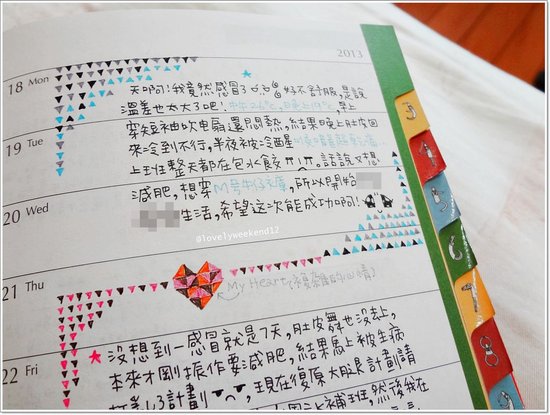 2013
18 Mon
天啊!我竟然感冒了 好不舒服,是說
溫差也太大了吧!中午26℃,晚上19℃,早上
穿短袖吹電扇還悶熱,結果晚上肚皮回
19 Tue
來冷到不行,半夜被冷醒
上班整天都在包水餃 話說又想
減肥,想穿M号牛仔褲,所以開始
20 Wed
生活,希望這次能成功啊!
@lovelyweekend12
21 Thu
My Heart(複雜的心情)
沒想到一感冒就是7天,肚皮舞也沒去上,
本來才剛振作要減肥,結果馬上被生病
22 Fri
打亂了計劃 ,現在復原大腿長計劃請
補班,然後我在